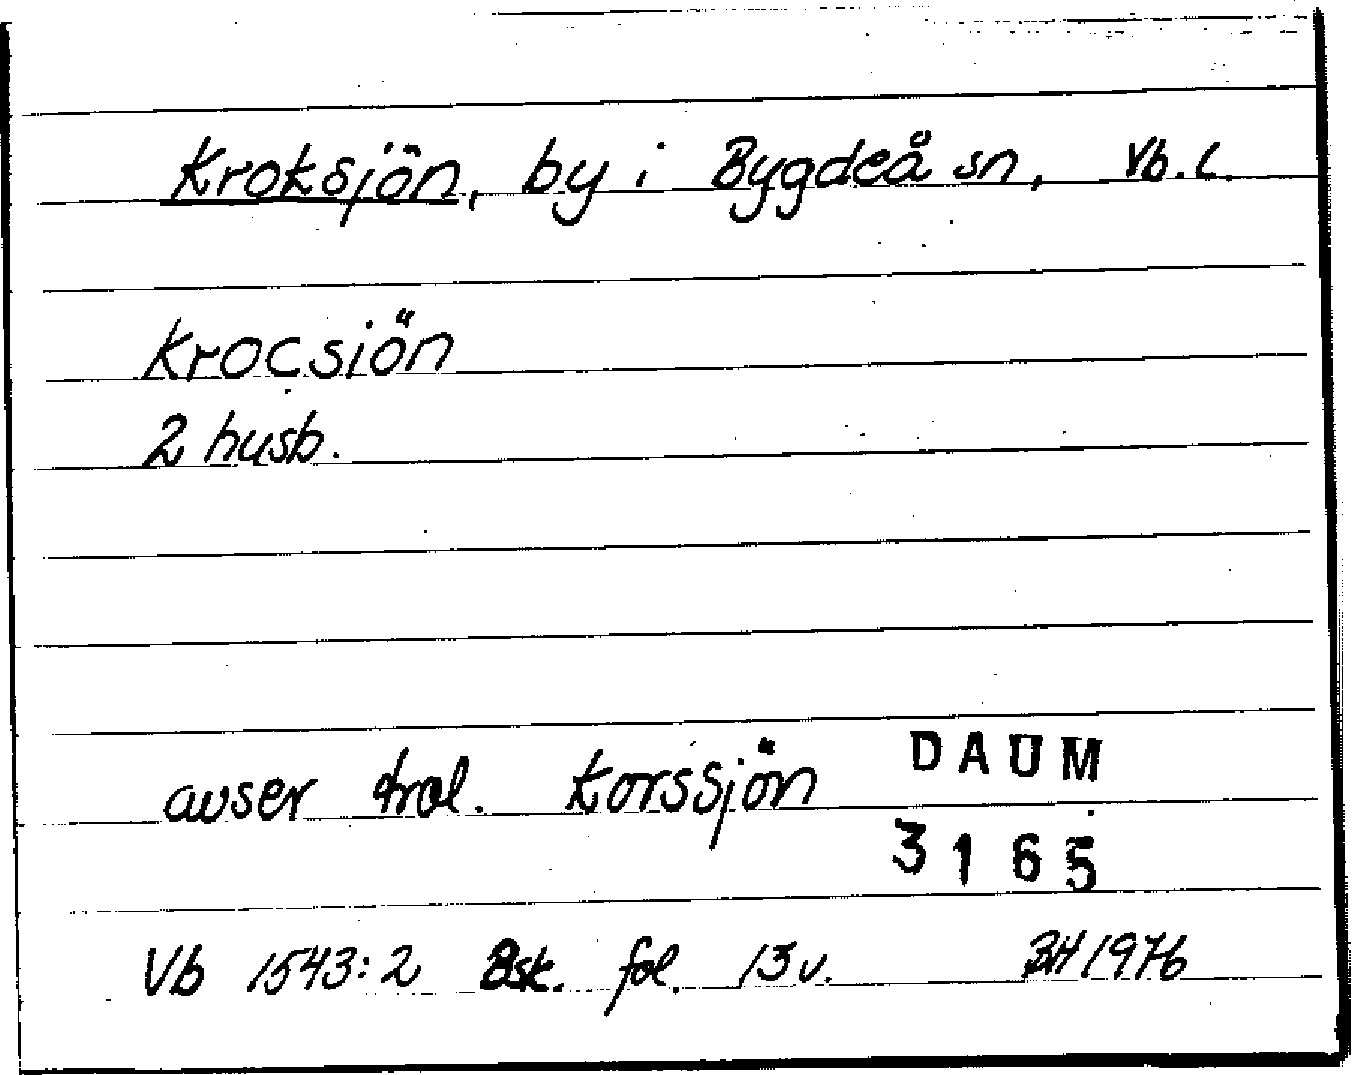 Kroksjön, by i Bygdeå sn, Vb. l.
Krocsiön
2 husb.
avser trol. Korssjön
DAUM
3165
Vb 1543:2 Åsk. fol. 13 v. BH 1976